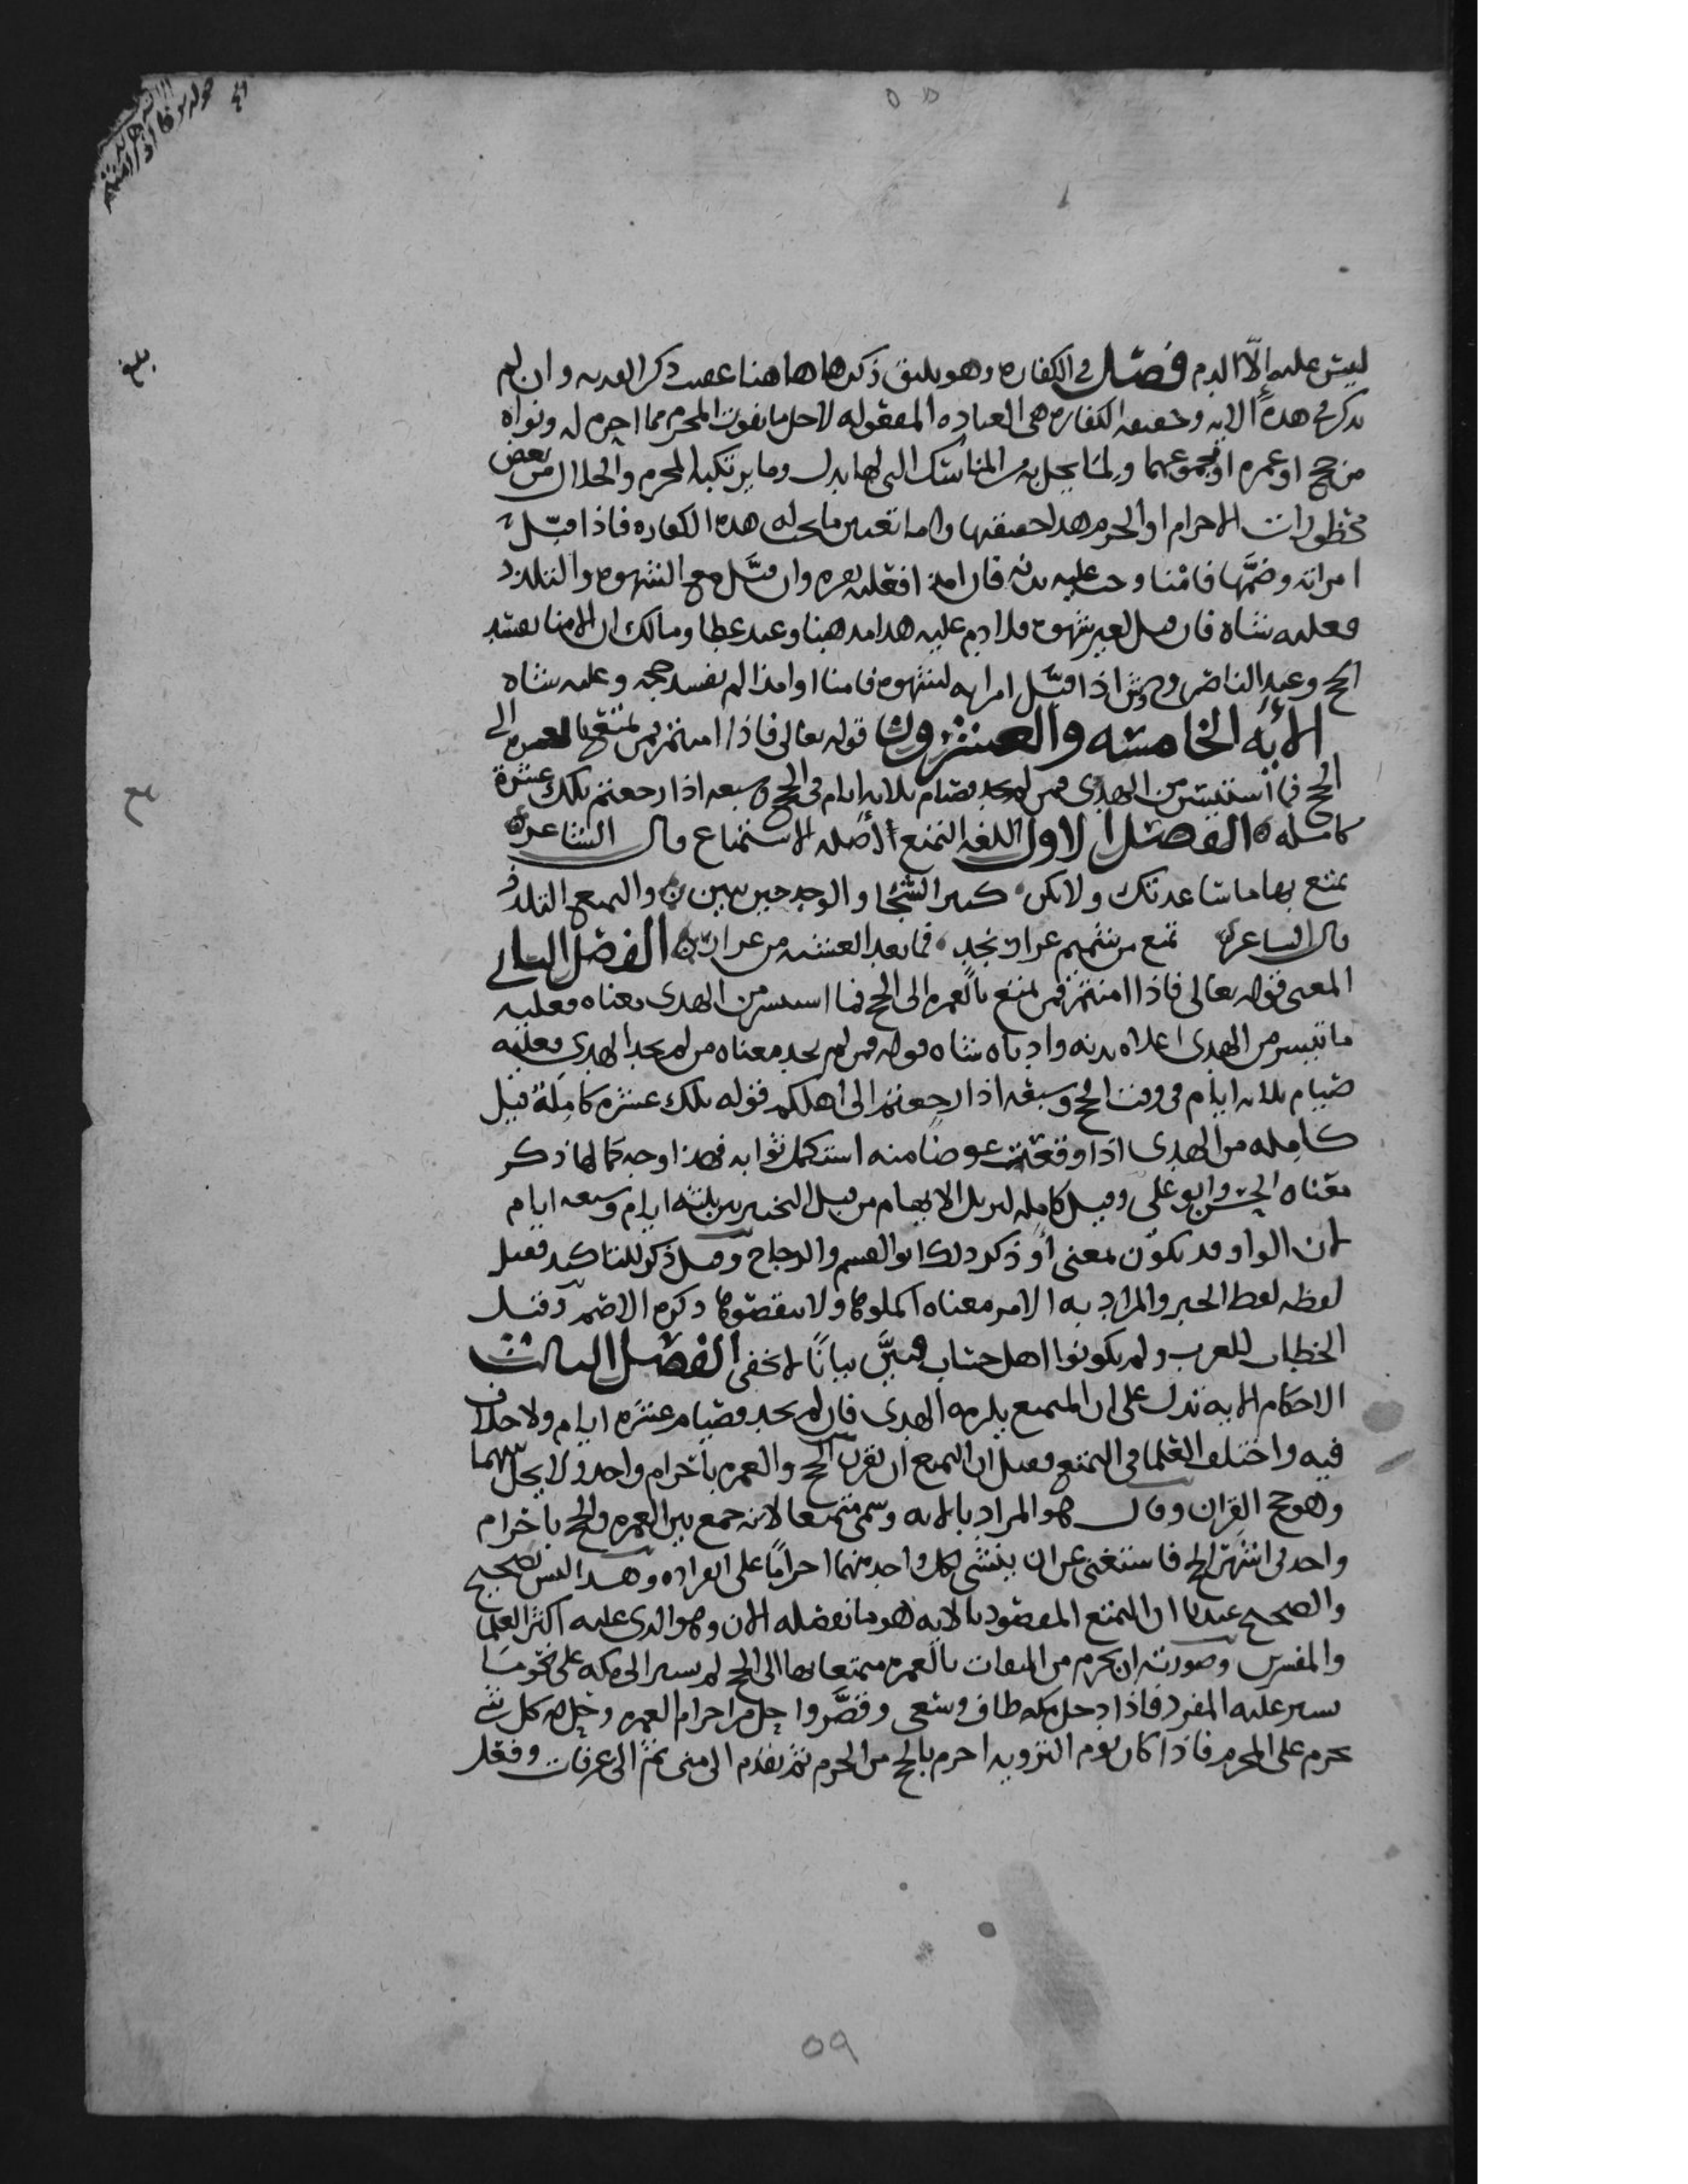 ليس عليه إلّا الدم فصل في الكفاره وهو يليق ذكرها هاهنا عقيب ذكر الفديه وان لم
يذكر في هذه الايه وحقيقه الكفاره هي العباده المفعوله لاجل ما يفوت المحرم مما احرم له ونواه
من حج او عمره او مجموعهما ولما يخل به من المناسك التي لها بدل وما يرتكبه المحرم والحلال من بعض
محظورات الاحرام او الحرم هذا حقيقتها واما تعيين ما يجب له هذه الكفاره فاذا قبّل
امراته وضمّها فامنا وجب عليه بدنه فان امذا فعليه بقره وان قبَّل مع الشهوه والتلذذ
فعليه شاه فان قبل لغير شهوه فلا دم عليه هذا مذهبنا وعند عطا ومالك ان الامنا يفسد
الحج وعند الناصر و اذا قبّل امراته لشهوه فامنا او امذا لم يفسد حجه وعليه شاه
الآيه الخامسه والعشرون قوله تعالى فاذا امنتم فمن تمتع بالعمره الى
الحج فما استيسر من الهدى فمن لم يجد فصيام ثلاثه ايام في الحج وسبعه اذا رجعتم تلك عشرة
كامله الفصل الاول اللغه التمتع أصله الاستمتاع قال الشاعر
تمتع بها ما ساعدتك ولا تكن كبير الشجا والوجد حين تبين والتمتع التلذذ
قال الشاعر تمتع من شميم عرار نجد فما بعد العشيه من عرار الفصل الثاني
المعنى قوله تعالى فاذا امنتم فمن تمتع بالعمره الى الحج فما استيسر من الهدى معناه فعليه
ما تيسر من الهدى اعلاه بدنه وادناه شاه قوله فمن لم يجد معناه من لم يجد الهدي فعليه
صيام ثلاثه ايام في وقت الحج وسبعه اذا رجعتم الى اهلكم قوله تلك عشره كامِلة قيل
كامِله من الهدى اذا وقعت عوضا منه استكمل ثوابه فهذا وجه كمالها ذكر
معناه الحسن وابو علي وقيل كامله ليزيل الابهام من قبل التخيير بين ثلثه ايام وسبعه ايام
لان الواو قد تكوّن بمعنى أو ذكر ذلك ابو القسم والزجاج وقيل ذكر للتاكيد فقيل
لفظه لفظ الخبر والمراد به الامر معناه اكملوها ولا تنقصوها ذكره الاصم وقيل
الخطاب للعرب ولم يكونوا اهل حساب فبيَّن بيانًا لا يخفى الفصل الثالث
الاحكام الايه تدل على ان المتمتع يلزمه الهدى فان لم يجد فصيام عشره ايام ولا خلاف
فيه واختلف العلما في التمتع فقيل ان التمتع ان يقرن الحج والعمره باحرام واحد ولا يحل بينهما
وهو حج القِران وقال هو المراد بالايه وسمى متمتعا لانه جمع بين العمره والحج باحرام
واحد في اشهر الحج فاستغنى عن ان ينشى لكل واحد منهما احرامًا على انفراده وهذا ليس بصحيح
والصحيح عندنا ان التمتع المقصود بالايه هو ما نفصله الان وهو الذي عليه اكثر العلما
والمفسرين وصورته ان يحرم من الميقات بالعمره متمتعا بها الى الحج لم يسير الى مكه على نحو ما
يسير عليه المفرد فاذا دخل مكه طاف وسعى وقصَّر واحل من احرام العمره وحل له كل شي
يحرم على المحرم فاذا كان يوم الترويه احرم بالحج من الحرم ثم تقدم الى منى ثم الى عرفات وفعل
بلغ
٥٩